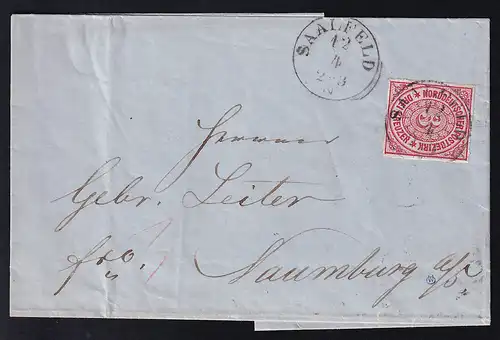 SAALFELD
12
4
2-3
N
NORDDEUTSCHER POSTBEZIRK
3
KREUZER
Herren
Gebr. Leiter
fro.
Naumburg a/S